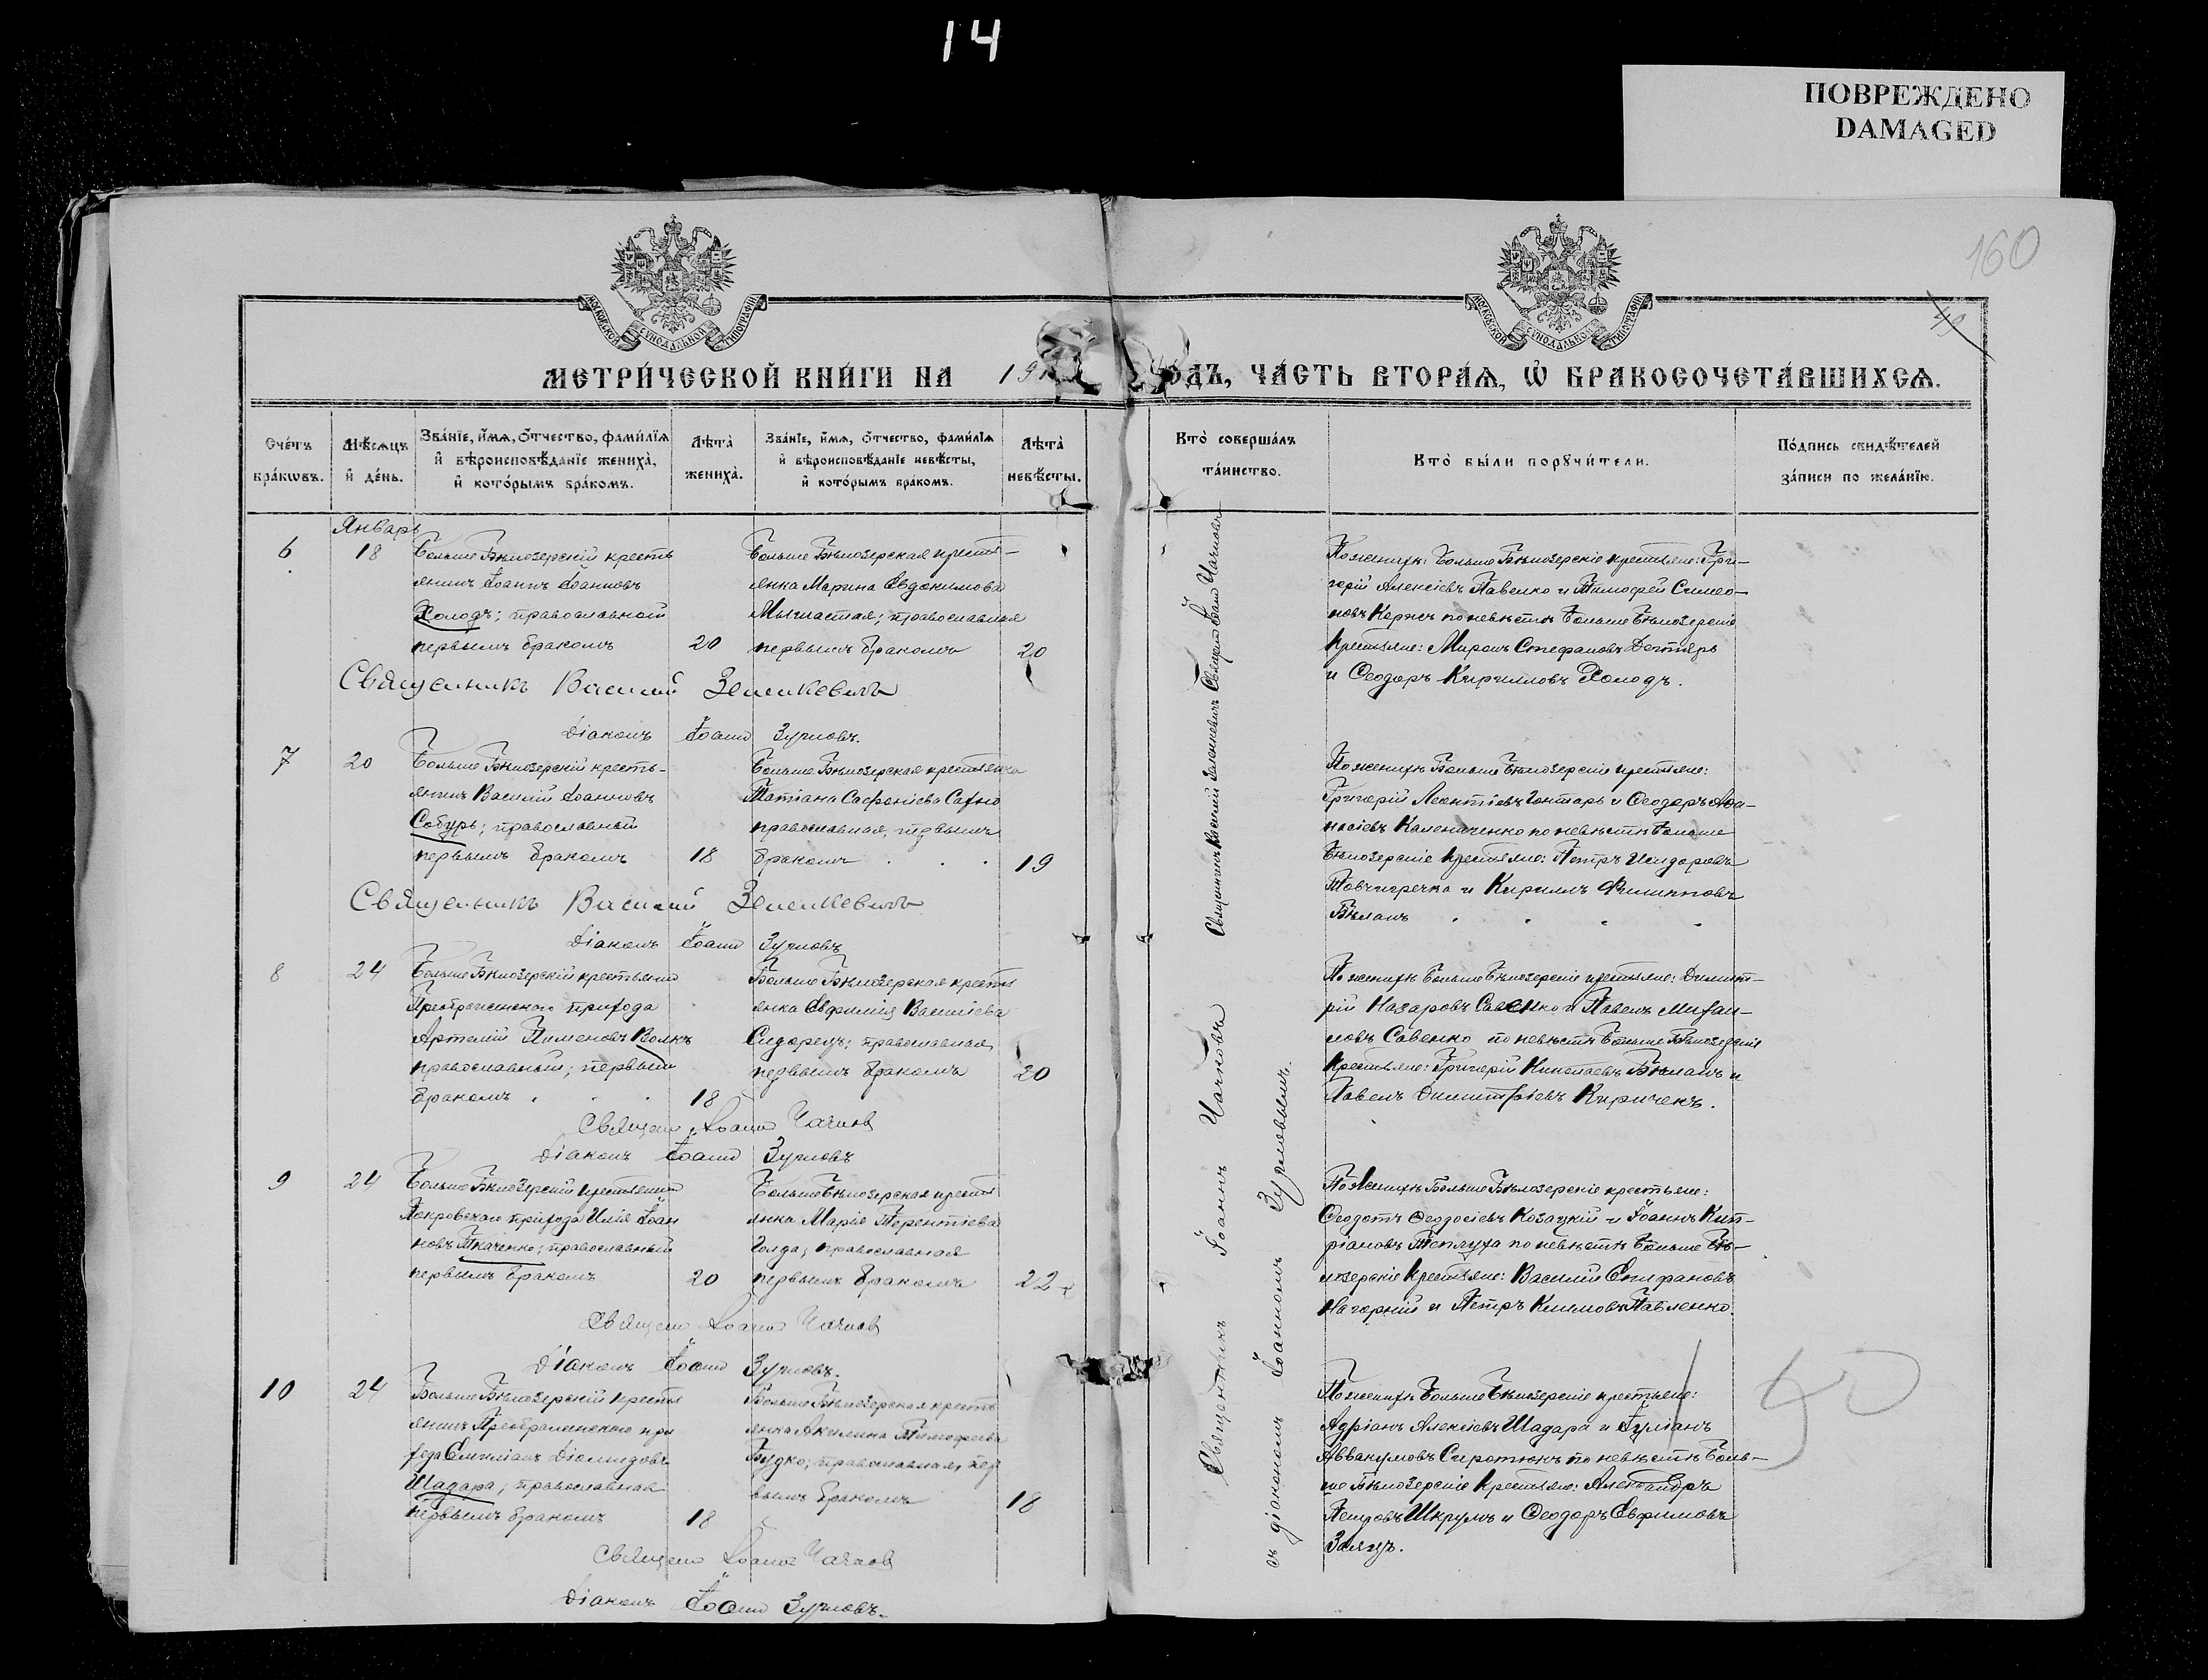 14
ПОВРЕЖДЕНО
DAMAGED
160
40
МОСКОВСКОЙ СѴНОДАЛЬНОЙ ТИПОГРАФІИ
МОСКОВСКОЙ СѴНОДАЛЬНОЙ ТИПОГРАФІИ
МЕТРИ́ЧЕСКОЙ КНИ́ГИ НА 191
О́ДЪ, ЧА́СТЬ ВТОРА́Ѧ, Ѡ БРАКОСОЧЕТА́ВШИХСѦ.
Сче́тъ бра́кѡвъ.
Мѣ́сѧцъ и҆ де́нь.
Зва́нїе, и҆́мѧ, ѻ҆́тчество, фами́лїѧ и҆ вѣроисповѣ́данїе жениха̀, и҆ кото́рымъ бра́комъ.
Лѣта̀ жениха̀.
Зва́нїе, и҆́мѧ, ѻ҆́тчество, фами́лїѧ и҆ вѣроисповѣ́данїе невѣ́сты, и҆ кото́рымъ бра́комъ.
Лѣта̀ невѣ́сты.
Кто̀ соверша́лъ та́инство.
Кто̀ бы́ли порꙋчи́тели.
По́дпись свидѣ́телей за́писи по жела́нїю.
Январь
6
18
Больше Бѣлозерскій кресть
янинъ Іоаннъ Іоанновъ
Холодъ; православный
первымъ бракомъ
20
Больше Бѣлозерская кресть-
янка Марина Евдокимова
православная
первымъ бракомъ
20
По женихѣ: Больше Бѣлозерскіе крестьяне: Гри-
горій Алексіевъ Павелко и Тимофей Симео-
новъ Коржъ по невѣстѣ Больше Бѣлозерскіе
крестьяне: Миронъ Стефановъ Дегтярь
и Ѳеодоръ Кирилловъ Холодъ.
Священникъ Василий Зеленкевичъ
Діаконъ Іоаннъ Зурновъ.
7
20
Больше Бѣлозерскій кресть-
янинъ Василій Іоанновъ
Собурь; православный
первымъ бракомъ
18
Больше Бѣлозерская крестьянка
Татіана Сафоніева Сахно
православная, первымъ
бракомъ . . .
19
По женихѣ Больше Бѣлозерскіе крестьяне:
Григорій Леонтіевъ Гонтарь и Ѳеодоръ Аѳа-
насіевъ Калениченко по невѣстѣ Больше
Бѣлозерскіе крестьяне: Петръ Исидоровъ
Товчигречка и Кириллъ Филипповъ
Бѣланъ . . . .
Священникъ Василий Зеленкевичъ
Діаконъ Іоаннъ Зурновъ
8
24
Больше Бѣлозерскій крестьянинъ
Преображенскаго прихода
Артемій Пименовъ Волкъ
православный; первымъ
бракомъ . . .
18
Больше Бѣлозерская кресть
янка Евфимія Василіева
Сидорецъ; православная,
первымъ бракомъ
20
По женихѣ Больше Бѣлозерскіе крестьяне: Димит-
рій Назаровъ Савенко и Павелъ Михаи-
ловъ Савенко по невѣстѣ Больше Бѣлозерскіе
крестьяне: Григорій Николаевъ Бѣланъ и
Павелъ Димитріевъ Кириченъ.
Священ Іоаннъ Чачковъ
Діаконъ Іоаннъ Зурновъ
9
24
Больше Бѣлозерскій крестьянинъ
Покровскаго прихода Илія Іоан
новъ Ткаченко; православный
первымъ бракомъ
20
Больше Бѣлозерская кресть
янка Марія Терентіева
Голда; православная
первымъ бракомъ
22
По женихѣ Больше Бѣлозерскіе крестьяне:
Ѳеодотъ Ѳеодосіевъ Козацкій и Іоаннъ Кип-
ріановъ Теплуха по невѣстѣ Больше Бѣ-
лозерскіе крестьяне: Василій Епифановъ
Нагорній и Петръ Климовъ Павленко.
Священ Іоаннъ Чачковъ
Діаконъ Іоаннъ Зурновъ.
10
24
Больше Бѣлозерскій кресть
янинъ Преображенскаго при
хода Емиліанъ Діомидовъ
Шадара; православная
первымъ бракомъ
18
Больше Бѣлозерская кресть
янка Акилина Тимофеева
Будко; православная, пер
вымъ бракомъ
18
По женихѣ Больше Бѣлозерскіе крестьяне:
Адріанъ Алексіевъ Шадара и Іуліанъ
Аввакумовъ Сиротюкъ по невѣстѣ Боль-
ше Бѣлозерскіе крестьяне: Александръ
Петровъ Шкрумъ и Ѳеодоръ Евфимовъ
Заяцъ.
Священ Іоаннъ Чачковъ
Діаконъ Іоаннъ Зурновъ.
Священникъ Василій Зеленкевичъ Священ Іоан Чачковъ
Священникъ Іоаннъ Чачковъ
съ діакономъ Іоанномъ Зурновымъ.